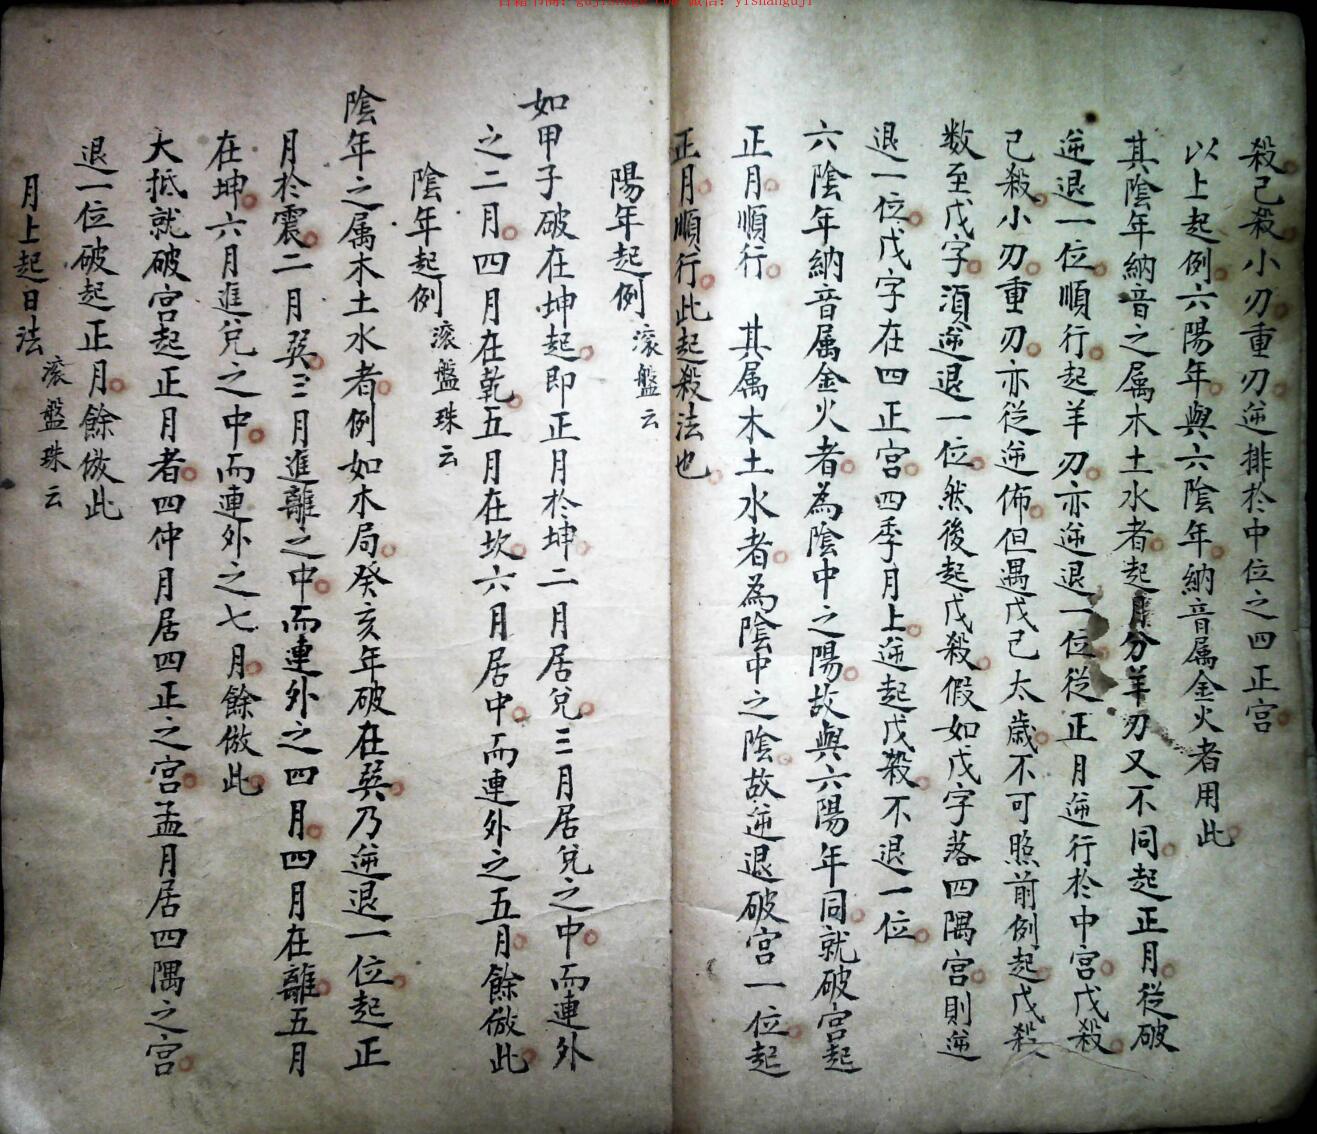 殺己殺小刃重刃逆排於中位之四正宫
以上起例六陽年與六陰年納音属金火者用此
其陰年納音之属木土水者起月分羊刃又不同起正月從破
逆退一位順行起羊刃亦逆退一位從正月逆行於中宫戊殺
己殺小刃重刃亦從逆佈但遇戊己太歲不可照前例起戊殺
数至戊字須逆退一位然後起戊殺假如戊字落四隅宫則逆
退一位戊字在四正宫四季月上逆起戊殺不退一位
六陰年納音属金火者為陰中之陽故與六陽年同就破宫起
正月順行　其属木土水者為陰中之陰故逆退破宫一位起
正月順行此起殺法也
陽年起例滚盤云
如甲子破在坤起即正月於坤二月居兌三月居兌之中而連外
之二月四月在乾五月在坎六月居中而連外之五月餘倣此
陰年起例滚盤珠云
陰年之属木土水者例如木局癸亥年破在巽乃逆退一位起正
月於震二月巽三月進離之中而連外之四月四月在離五月
在坤六月進兌之中而連外之七月餘倣此
大抵就破宫起正月者四仲月居四正之宫孟月居四隅之宫
退一位破起正月餘倣此
月上起日法滚盤珠云